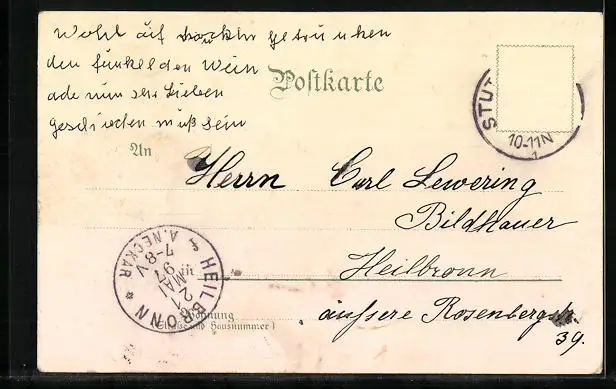 Wohl auf noch getrunken
den funkelden Wein
ade nun ihr Lieben
geschieden muß sein
Postkarte
STU
10-11N
1
An
Herrn Carl Lewering
Bildhauer
in Heilbronn
äussere Rosenbergstr.
39.
Wohnung
(Straße und Hausnummer)
HEILBRONN
A. NECKAR
21
MAI
97
7-8 V